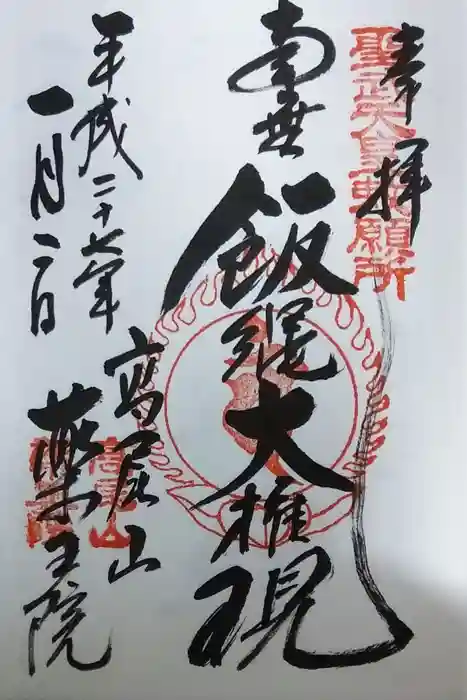 奉拝
聖武天皇勅願所
南無
飯縄大権現
平成二十七年
一月二日
高尾山
薬王院
高尾山